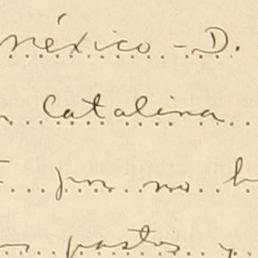 México - D.
Catalina
por no h
pastos y